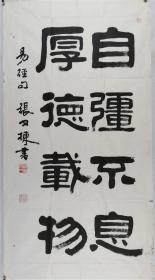 自彊不息
厚德載物
易經句 張
書